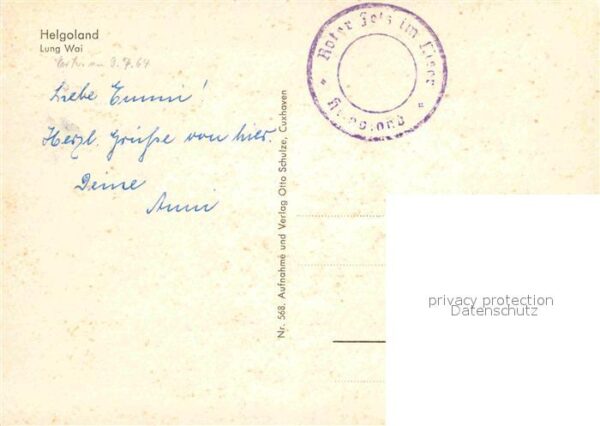 Helgoland
Lung Wai
3. 7. 64
Liebe Emmi!
Herzl. Grüße von hier.
Deine
Anni
Nr. 568. Aufnahme und Verlag Otto Schulze, Cuxhaven
Roter Fels im Meer
Helgoland
privacy protection
Datenschutz